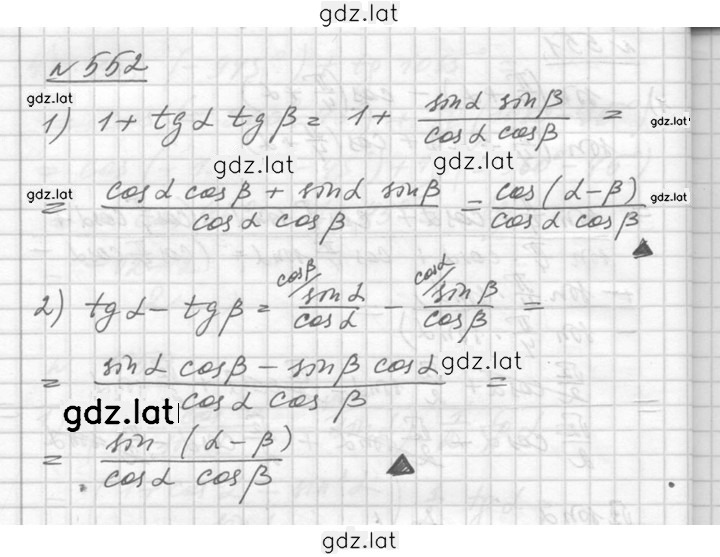 gdz.lat
№ 552
gdz.lat
1) 1 + tg α tg β = 1 + sin α sin β / cos α cos β =
gdz.lat
gdz.lat gdz.lat
gdz.lat
= cos α cos β + sin α sin β / cos α cos β = cos (α - β) / cos α cos β ▲
gdz.lat
2) tg α - tg β = cos β / sin α / cos α - cos α / sin β / cos β =
gdz.lat
= sin α cos β - sin β cos α / cos α cos β =
gdz.lat
= sin (α - β) / cos α cos β ▲
gdz.lat